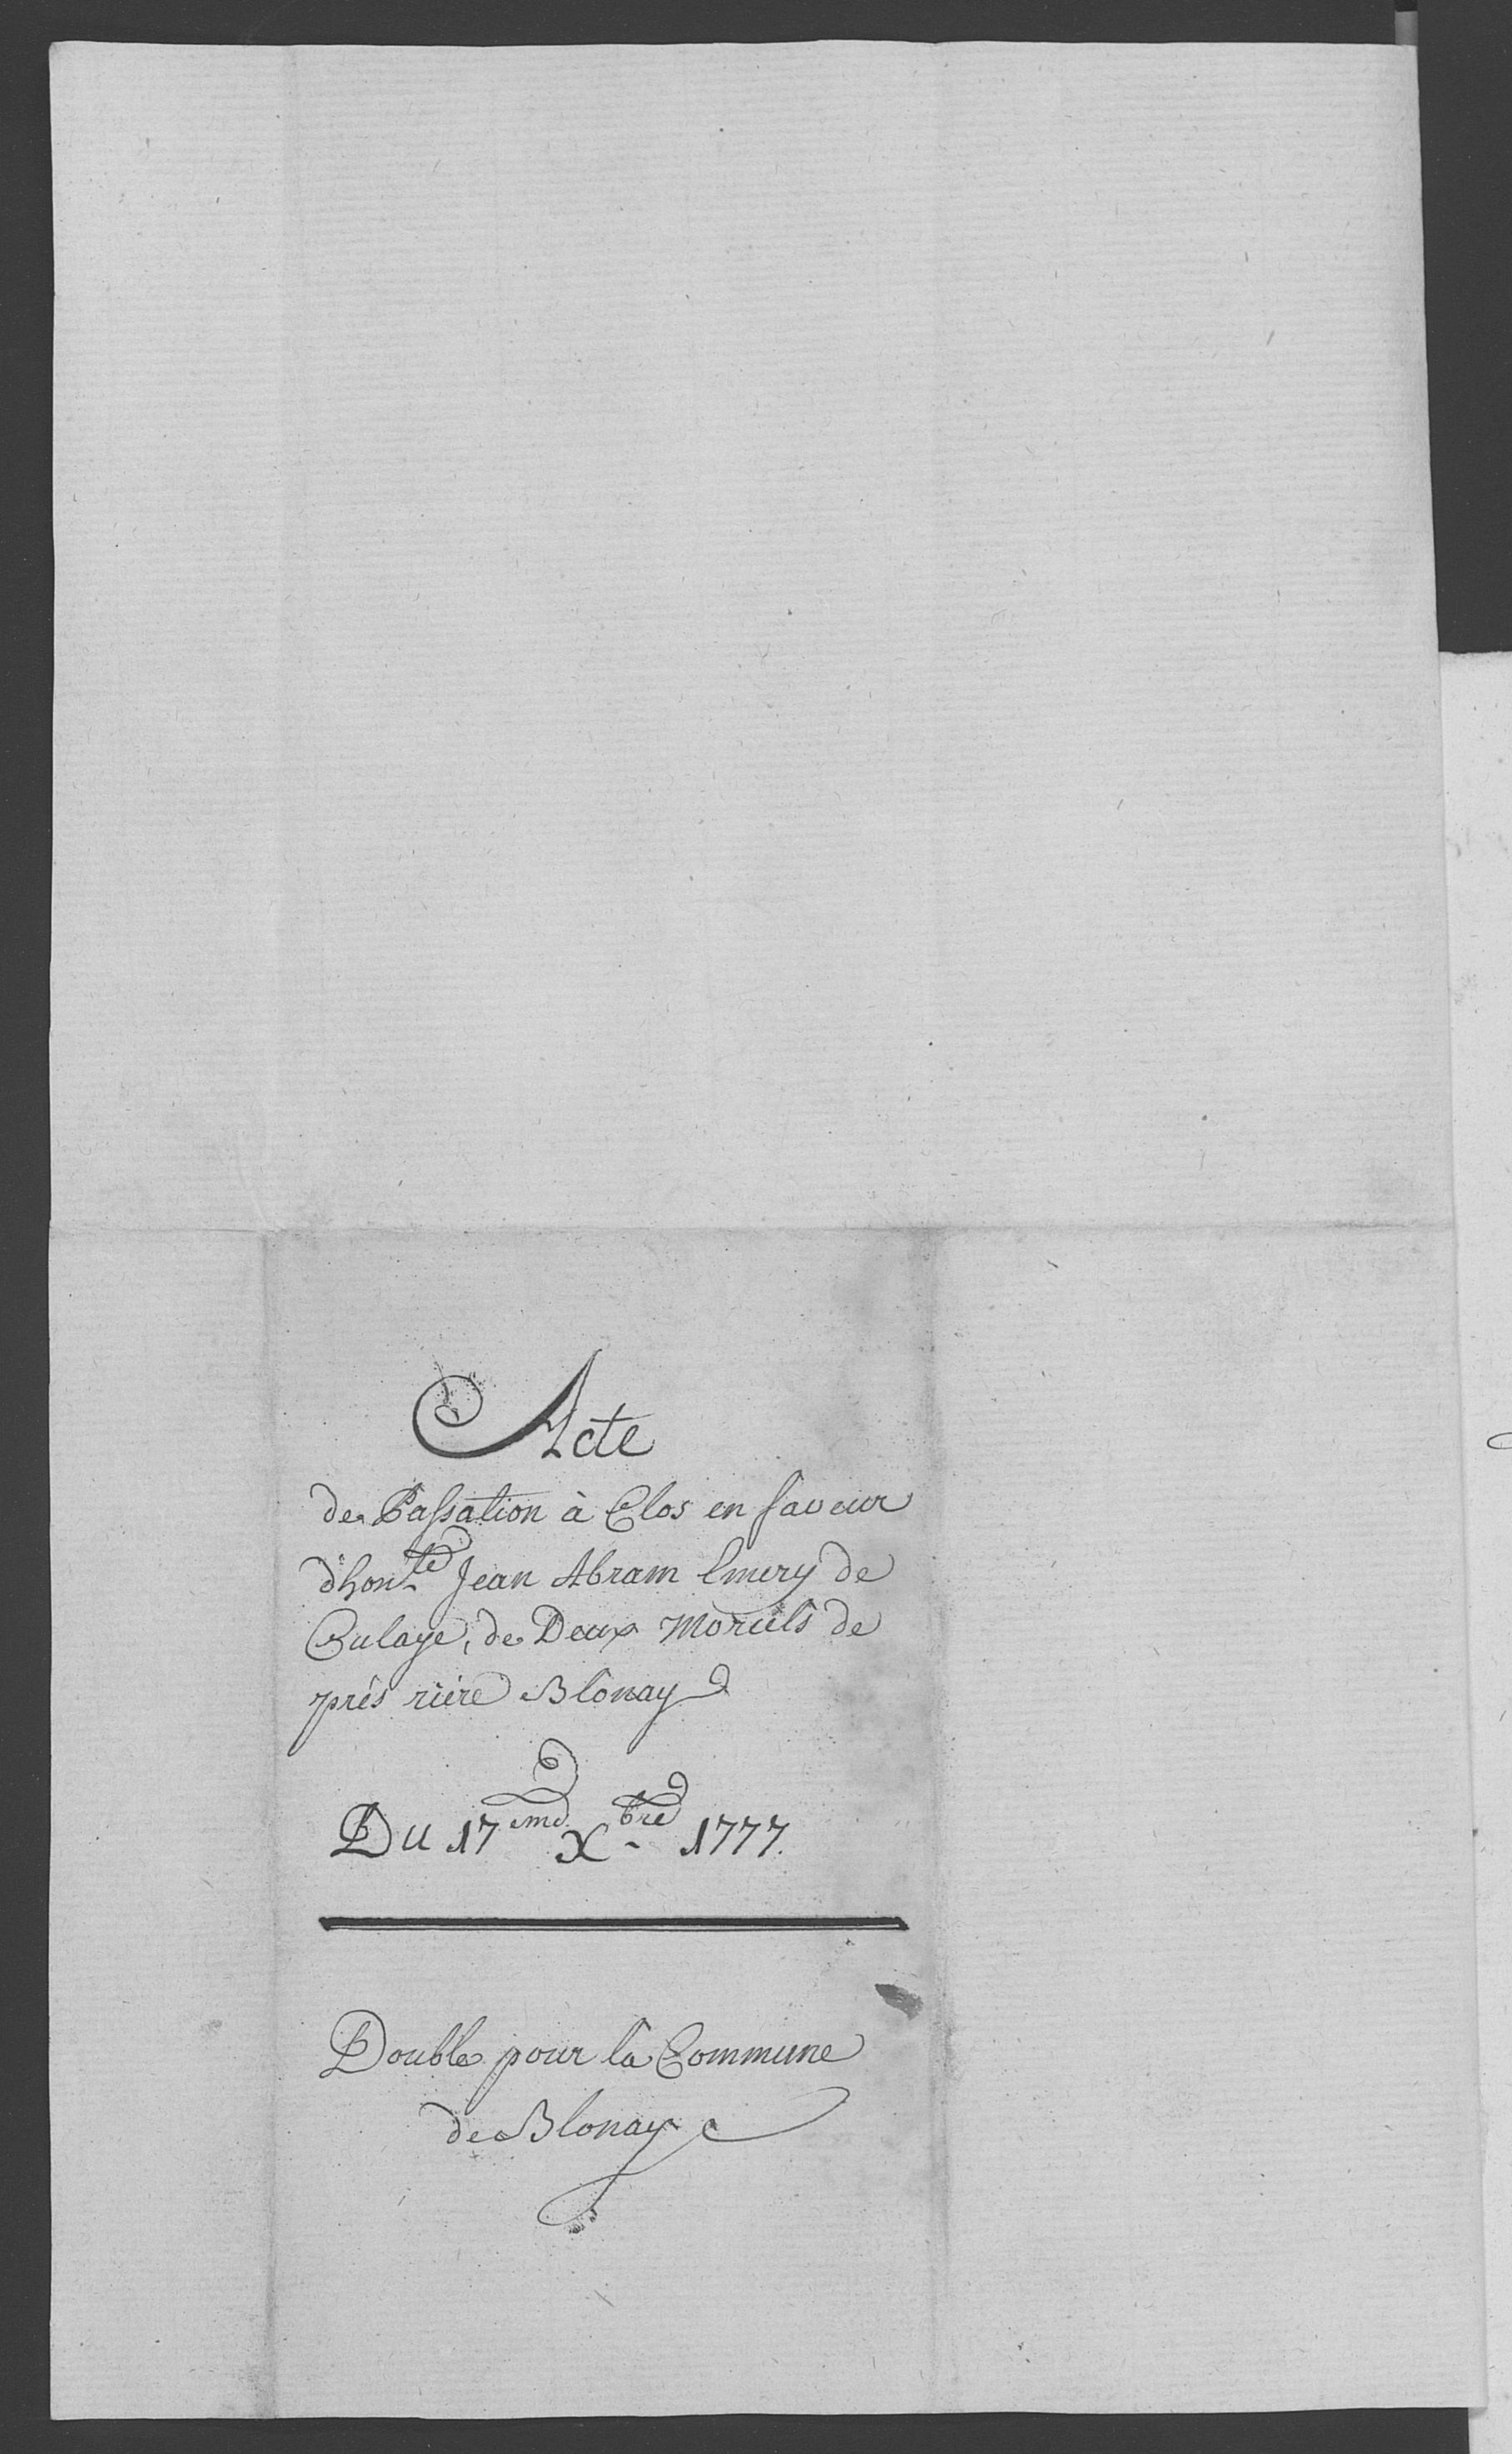 Acte
de Passation à Clos en faveur
d'hon.te Jean Abram Emery de
Culaye, de Deux Morcels de
prés riére Blonay
Du 17eme Xbre 1777.
Double pour la Commune
de Blonay